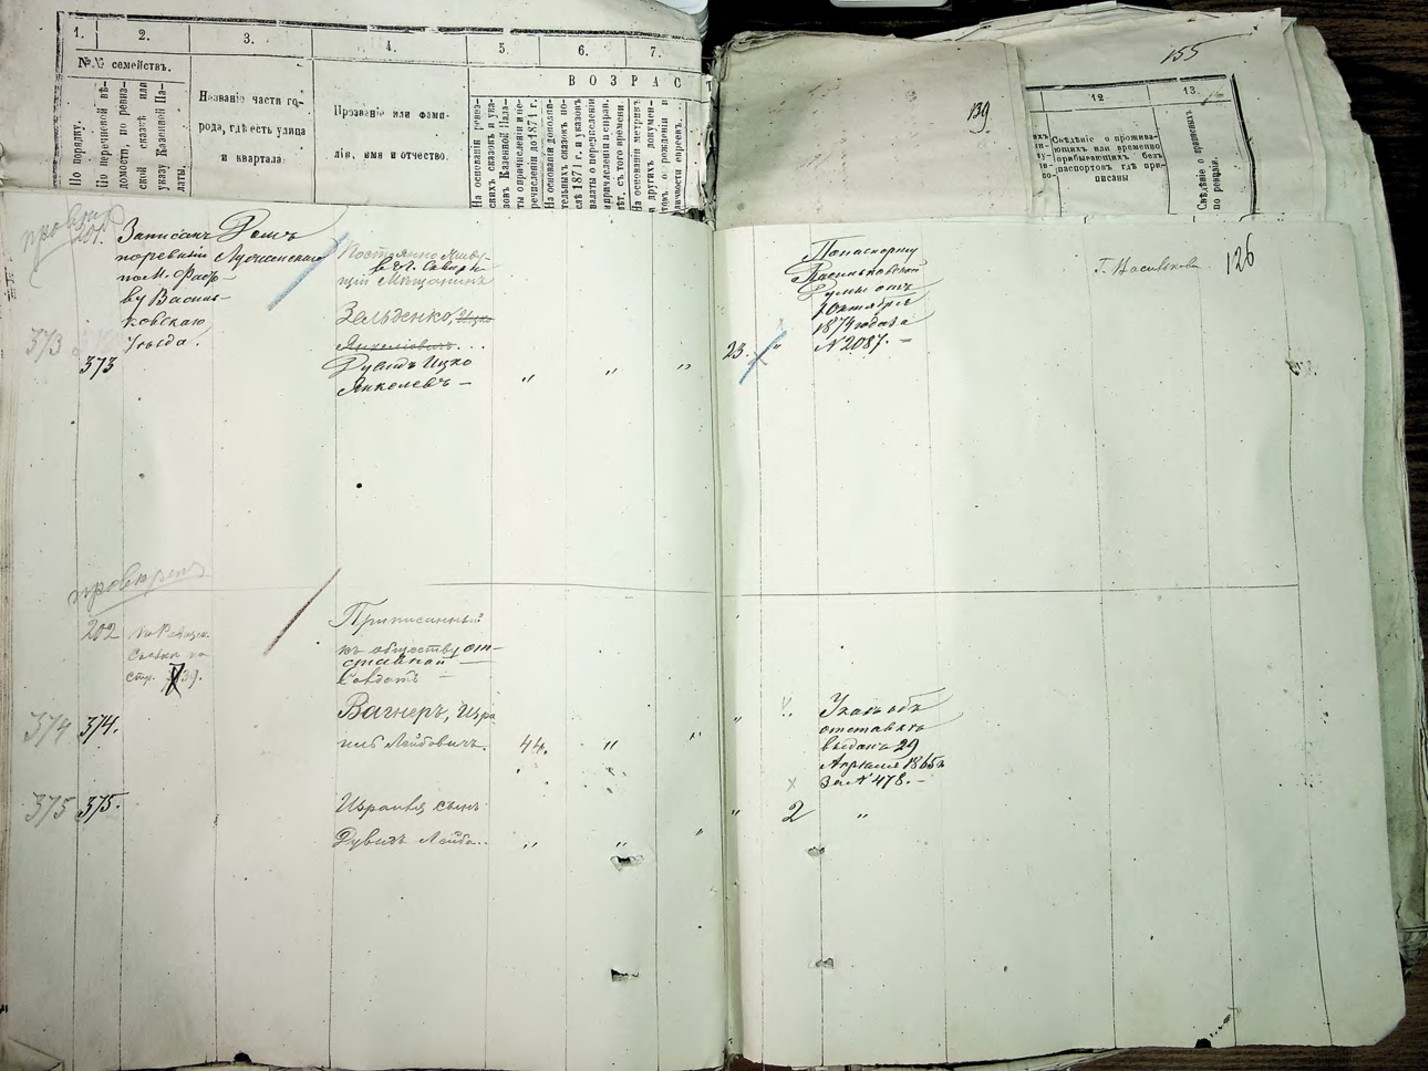 1.
2.
3.
4.
5.
6.
7.
№№ семействъ.
ВОЗРАС
По порядку.
По перечневой вѣ-
домости, по ревиз-
ской сказкѣ или
указу Казенной Па-
латы.
Названіе части го-
рода, гдѣ есть улица
и квартала
Прозваніе или фами-
лія, имя и отчество.
На основаніи ревиз-
скихъ сказокъ и ука-
зовъ Казенной Пала-
ты о причисленіи и пе-
речисленіи до 1871 г.
На основаніи дополни-
тельныхъ сказокъ по-
слѣ 1871 г. и указовъ
палаты о перечисленіи
и причисленіи
лѣт. съ того времени
На основаніи метрикъ
и другихъ докумен-
товъ о рожденіи и
личности евреевъ.
139
155
12
13.
Свѣдѣніе о прожива-
ющихъ или временно
прибывающихъ безъ
паспортовъ гдѣ при-
писаны
по ревизіи.
201.
Записанъ
по ревизіи
по М. Фас-
ву Василь-
ковскаго
Уѣзда.
Домъ
Постоянно живу-
щій Мѣщанинъ
Зельденко, Ицко
Янкелевичъ...
Дувидъ Ицко
Янкелевъ —
373
373
" " "
23. "
По паспорту
Васильковской
Думы отъ
Октября
1874 года за
№ 2087. —
Г. Василькова
126
202
По Ревизск.
стр.
Приписанный
къ обществу от-
ставной —
Солдатъ —
374
374.
Вагнеръ, Изра
иль Лейбовичъ.
44. " "
"
Указъ объ
отставкѣ
выданъ 29
Апрѣля 1865
за № 478. —
375
375.
Израиля сынъ
Дувидъ Лейба..
" " "
" 2 "